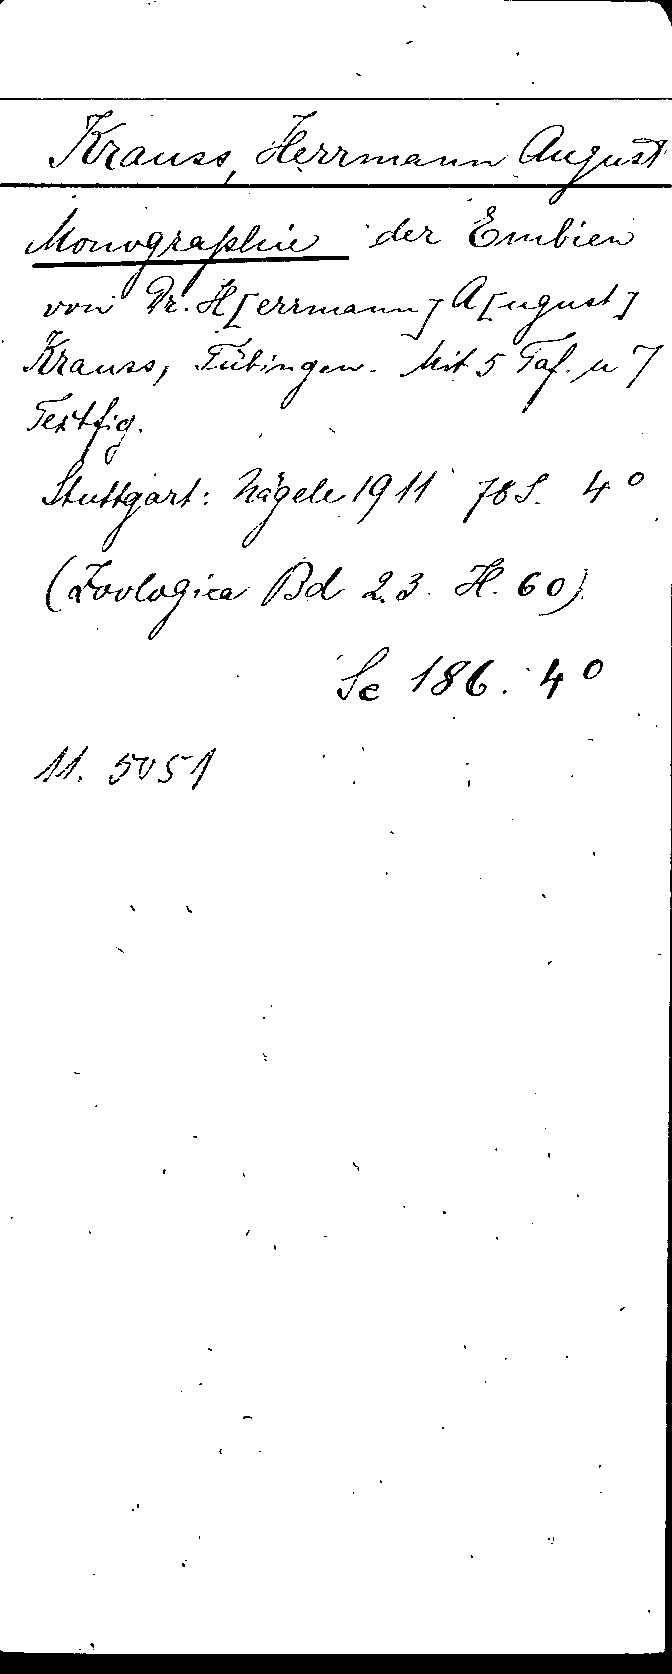 Krauss, Herrmann August
Monographie der Embien
von Dr. H[errmann] A[ugust]
Krauss, Tübingen. Mit 5 Taf. u 7
Textfig.
Stuttgart: Nägele 1911 78 S. 4°
(Zoologica Bd 23. H. 60)
Se 186. 4°
11. 5051